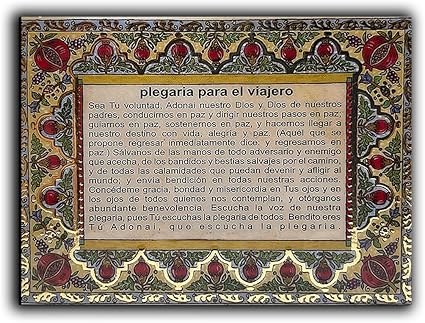 plegaria para el viajero
Sea Tu voluntad, Adonai nuestro Dios y Dios de nuestros
padres, conducirnos en paz y dirigir nuestros pasos en paz,
guiarnos en paz, sostenernos en paz, y hacernos llegar a
nuestro destino con vida, alegría y paz. (Aquél que se
propone regresar inmediatamente dice: y regresarnos en
paz.) Sálvanos de las manos de todo adversario y enemigo
que acecha, de los bandidos y bestias salvajes por el camino,
y de todas las calamidades que puedan devenir y afligir al
mundo; y envía bendición en todas nuestras acciones.
Concédeme gracia, bondad y misericordia en Tus ojos y en
los ojos de todos quienes nos contemplan, y otórganos
abundante benevolencia. Escucha la voz de nuestra
plegaria, pues Tú escuchas la plegaria de todos. Bendito eres
Tú Adonai, que escucha la plegaria.